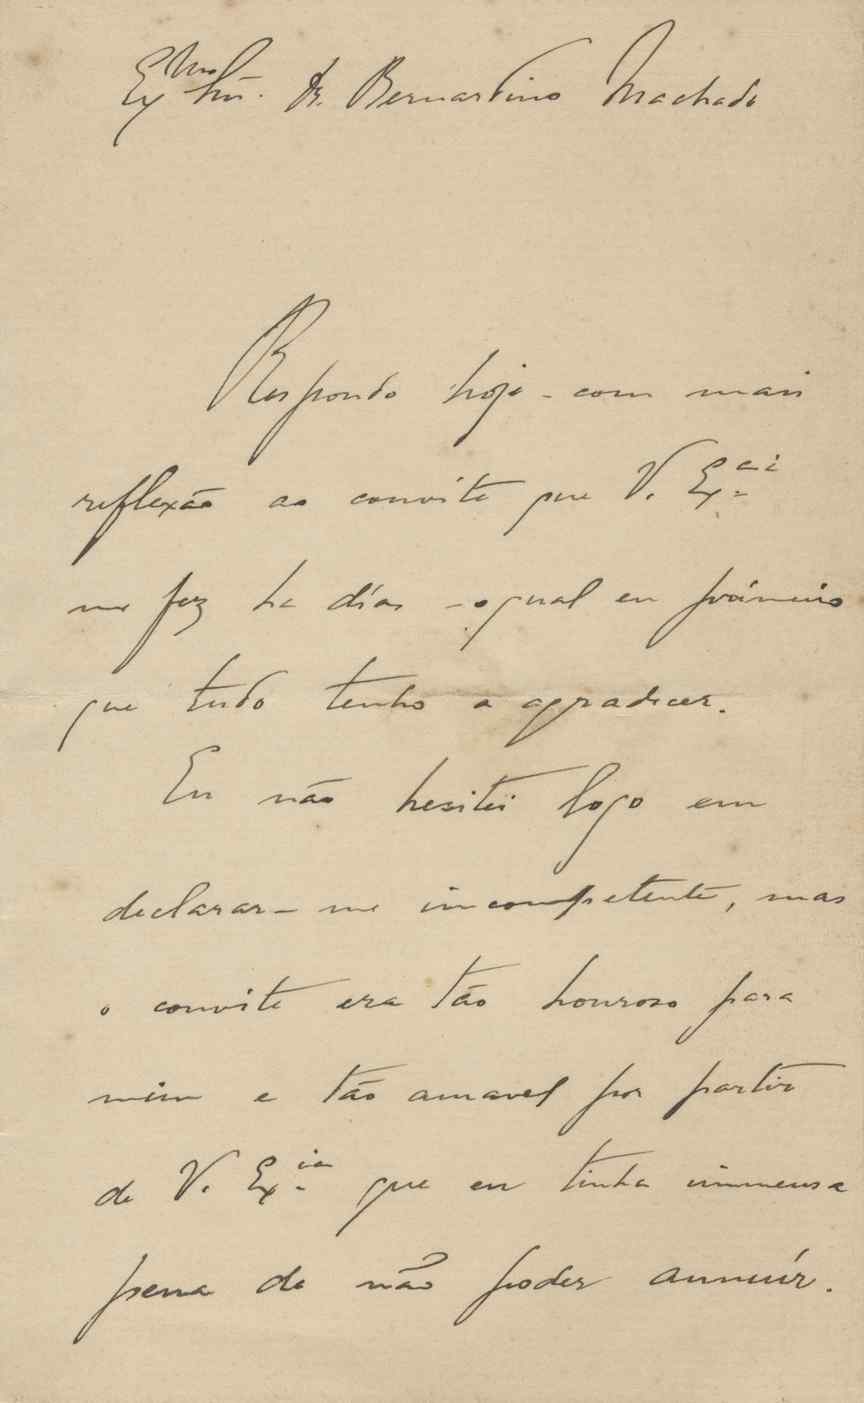 Ex.mo Snr. Dr. Bernardino Machado
Respondo hoje - com mais
reflexão ao convite que V. Ex.cia
me fez ha dias - o qual eu primeiro
que tudo tenho a agradecer.
Eu não hesitei logo em
declarar-me incompetente, mas
o convite era tão honroso para
mim e tão amavel por partir
de V. Ex.ia que eu tinha immensa
pena de não poder annuir.